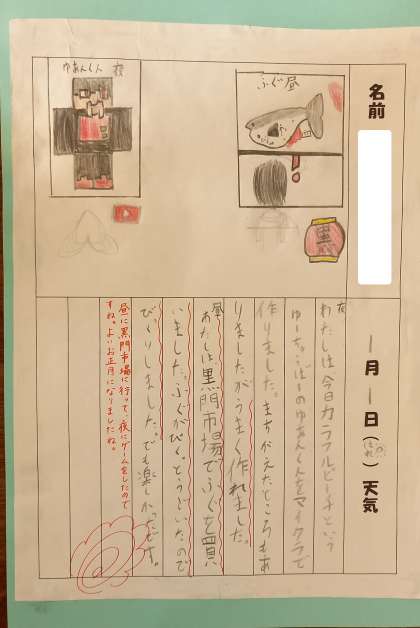 名前
一月一日(はれ)天気
ふぐ昼
黒
ゆあんくん 夜
夜
わたしは今日カラフルピーチという
ゆーちゅーばーのゆあんくんをマイクラで
作りました。まちがえたところもあ
りましたがうまく作れました。
昼
わたしは黒門市場でふぐを買
いました。ふぐがぴくっとうごいたので
びっくりしました。でも楽しかったです。
昼に黒門市場に行って、夜にゲームをしたので
すね。よいお正月になりましたね。